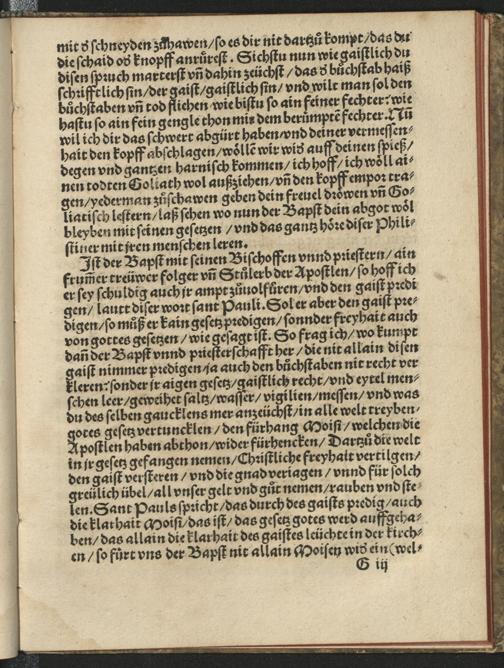 mit d̕ schneyden zůhawen/so es dir nit dartzů kompt/das du
die schaid od̕ knopff anrürest. Sichstu nun wie gaistlich du
disen spruch marterst vñ dahin zeüchst/das d̕ bůchstab haiß
schrifftlich sin/der gaist/gaistlich sin/vnd wilt man sol den
bůchstaben vñ tod fliehen/wie bistu so ain feiner fechter: wie
hastu so ain fein gengle thon mir dem berümptẽ fechter. Nũ
wil ich dir das schwert abgürt haben/vnd deiner vermessen⸗
hait den kopff abschlagen/wöllẽ wir wid̕ auff deinen spieß/
degen vnd gantzen harnisch kommen/ich hoff/ich wöll ai⸗
nen todten Goliath wol außziehen/vñ den kopff empor tra⸗
gen/yederman zůschawen geben dein freuel dröwen vñ Go⸗
liatisch lestern/laß sehen wo nun der Bapst dein abgot wöl
bleyben mit seinen gesetzen/vnd das gantz höre diser Phili⸗
stiner mit jren menschen leren.
Ist der Bapst mit seinen Bischoffen vnnd priestern/ain
frum̃er treüwer folger vñ Stůlerb der Apostlen/so hoff ich
er sey schuldig auch jr ampt zůuolfüren/vnd den gaist predi
gen/lautt diser wort sant Pauli. Sol er aber den gaist pre⸗
digen/so můß er kain gesetz predigen/sonnder freyhait auch
von gottes gesetzen/wie gesagt ist. So frag ich/wo kumpt
dañ der Bapst vnnd priesterschafft her/die nit allain disen
gaist nimmer predigen/ja auch den bůchstaben nit recht ver
kleren: sonder jr aigen gesetz/gaistlich recht/vnd eytel men⸗
schen leer/geweihet saltz/wasser/vigilien/messen/vnd was
du des selben gaucklens mer anzeüchst/in alle welt treyben⸗
gotes gesetz vertuncklen/den fürhang Moisi/welchen die
Apostlen haben abthon/wider fürhencken/Dartzů die welt
in jr gesetz gefangen nemen/Christliche freyhait vertilgen/
den gaist versteren/vnd die gnad veriagen/vnnd für solch
greülich übel/all vnser gelt vnd gůt nemen/rauben vnd ste⸗
len. Sant Pauls spricht/das durch des gaists predig/auch
die klarhait Moisi/das ist/das gesetz gotes werd auffgeha⸗
ben/das allain die klarhait des gaistes leüchte in der kirch⸗
en/so fürt vns der Bapst nit allain Moisen wid̕ ein (wel⸗
G iij